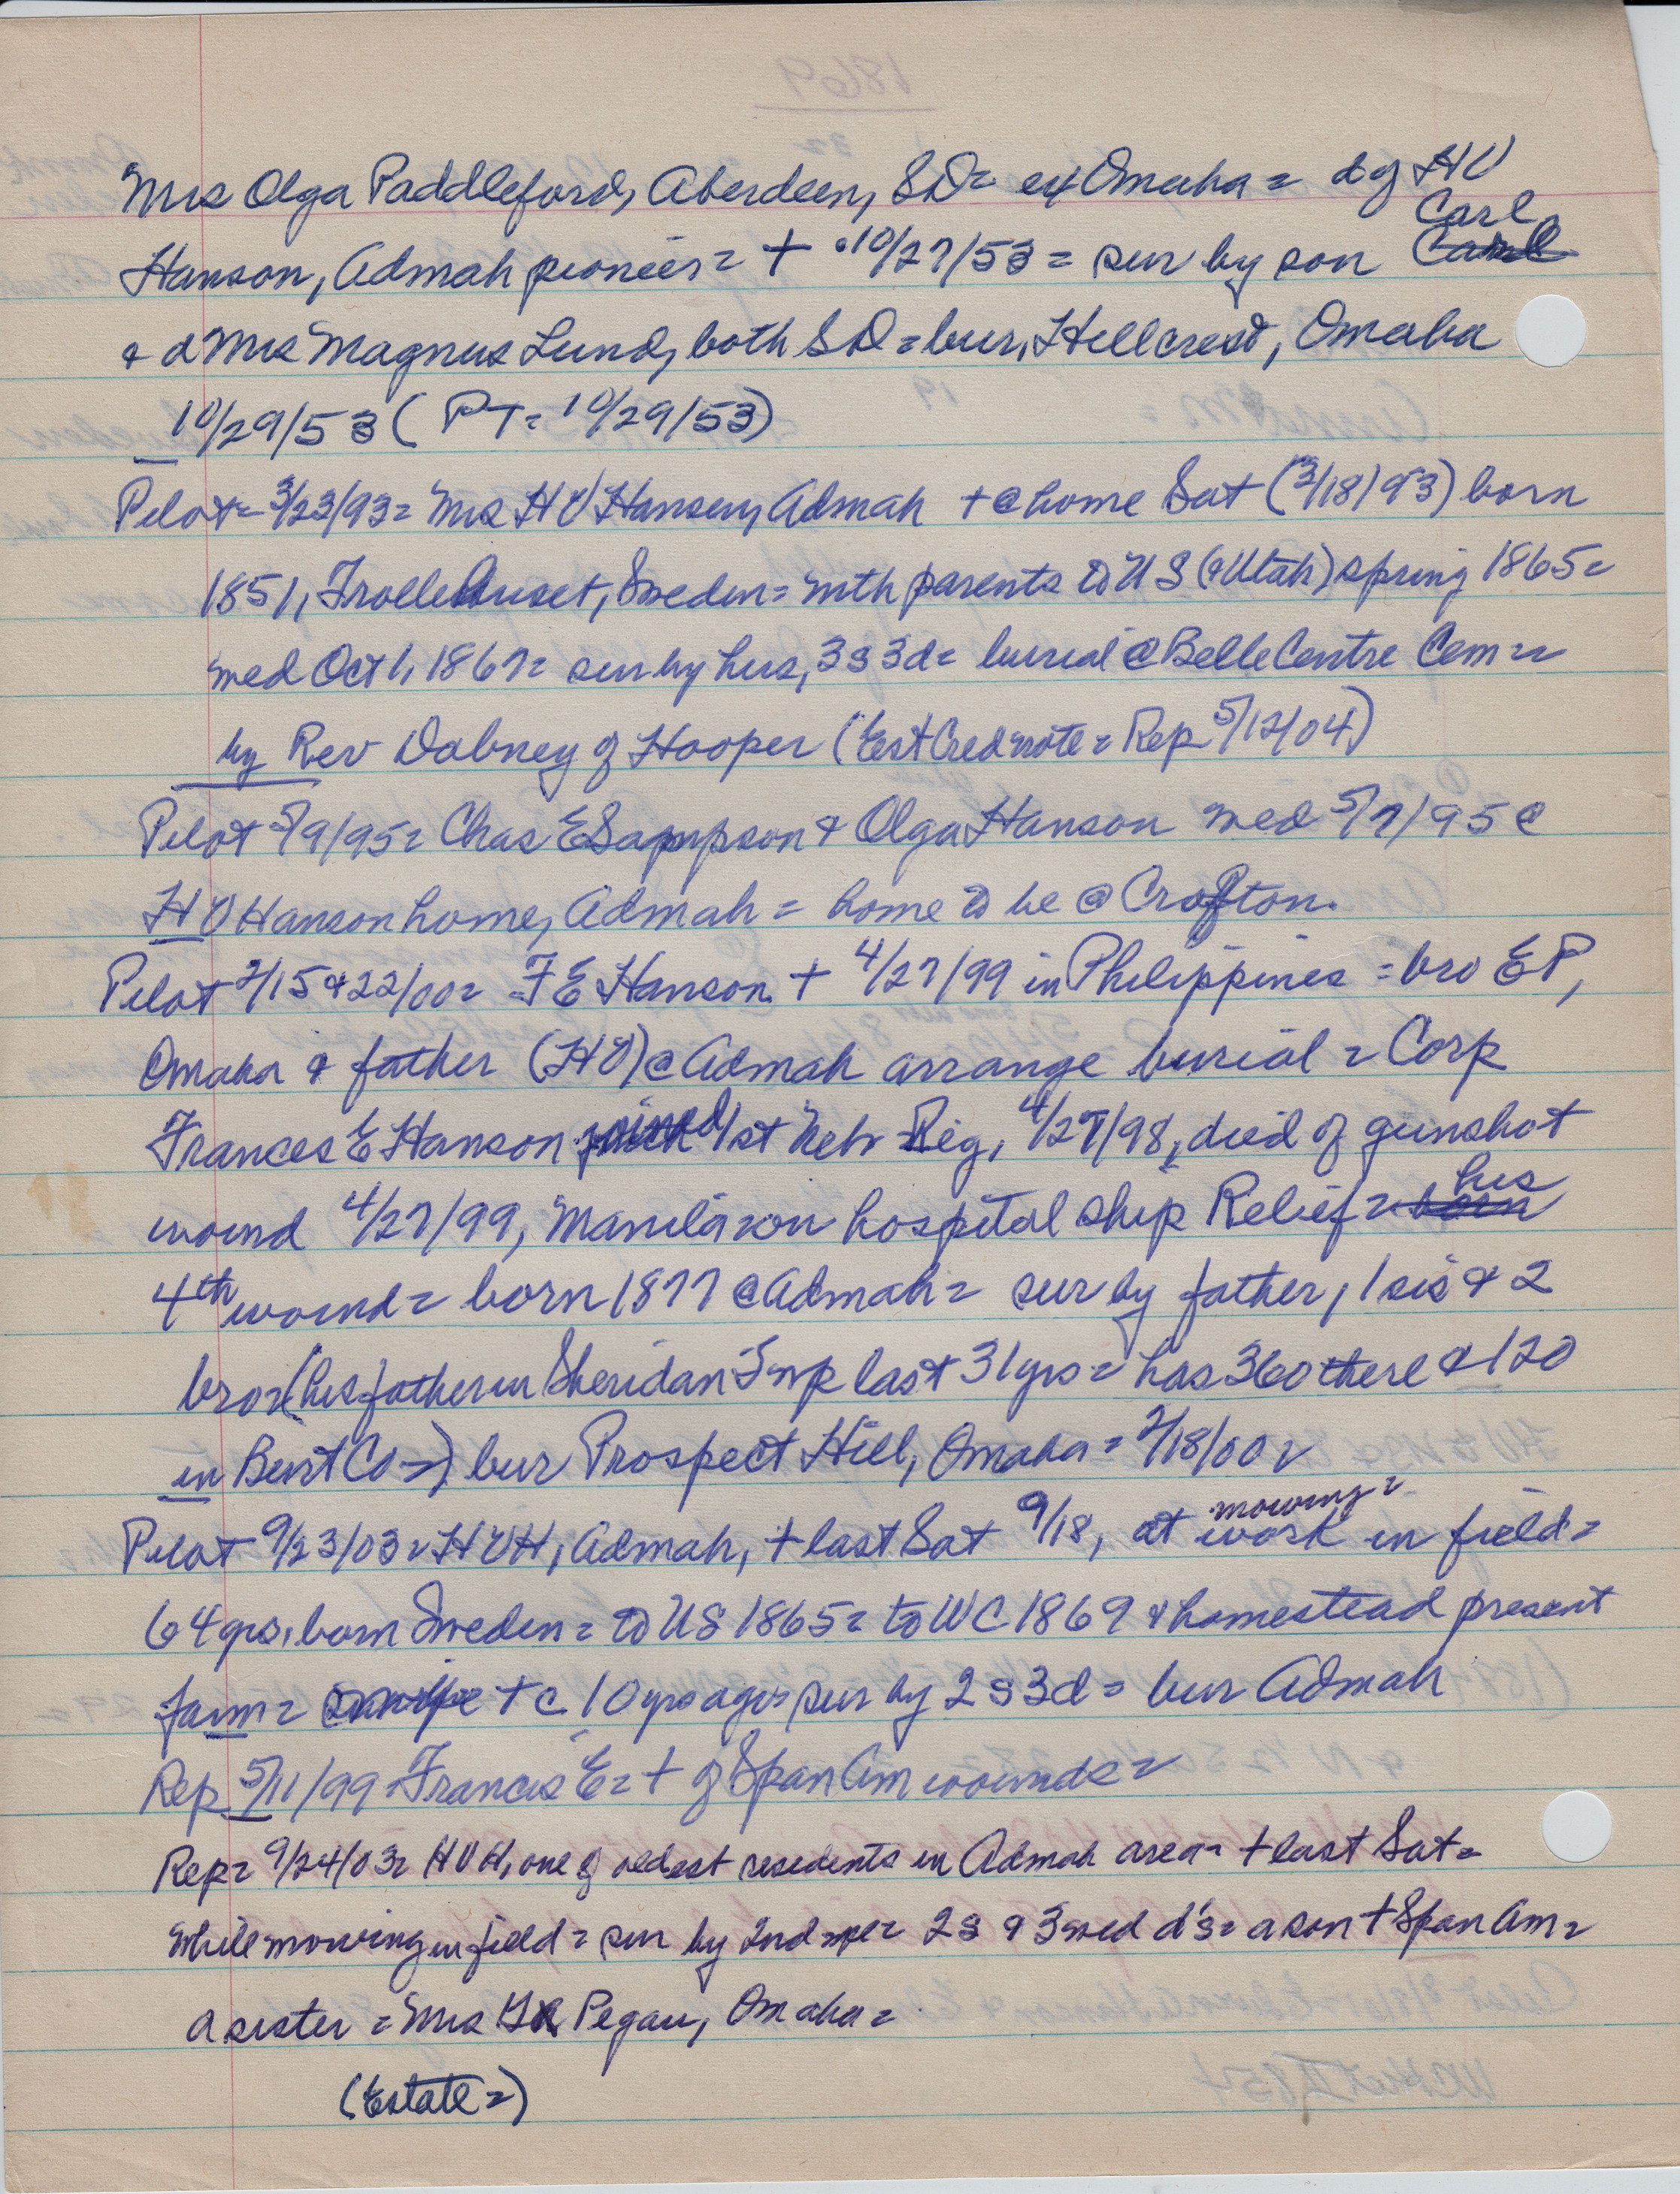 Mrs Olga Paddleford, Aberdeen, SD= ex Omaha= d of HV
Hanson, Admah pioneer= + 10/27/53= sur by son Carl
& d Mrs Magnus Lund, both SD= bur, Hillcrest, Omaha
10/29/53 (PT= 10/29/53)
Pilot= 3/23/93= Mrs HV Hanson, Admah + @ home Sat (3/18/93) born
1851, Sweden= with parents to US (& Utah) spring 1865=
med Oct 1, 1867= sur by hus, 3 s 3 d= burial @ Belle Centre Cem=
by Rev Dabney of Hooper (Est Cred note= Rep 5/12/04)
Pilot 5/9/95= Chas E Sampson & Olga Hanson med 5/7/95 @
HV Hanson home, Admah= home to be @ Crofton.
Pilot 2/15 & 22/00= F E Hanson + 4/27/99 in Philippines= bro EP,
Omaha & father (HV) @ Admah arrange burial= Corp
Frances E Hanson joined 1st Nebr Reg, 4/27/98, died of gunshot
wound 4/27/99, Manila= on hospital ship Relief= his
4th wound= born 1877 @ Admah= sur by father, 1 sis & 2
bro= (his father in Sheridan Twp last 31 yrs= has 360 there & 120
in Burt Co=) bur Prospect Hill, Omaha= 2/18/00=
Pilot 9/23/03= HVH, Admah, + last Sat 9/18, at work mowing= in field=
64 yrs, born Sweden= to US 1865= to WC 1869 & homestead present
farm= wife + c 10 yrs ago= sur by 2 s 3 d= bur Admah
Rep 5/11/99 Francis E= + of Span Am wounds=
Rep= 9/24/03= HVH, one of oldest residents in Admah area= + last Sat=
while mowing in field= sur by 2nd 2 s & 3 med d's= a son + Span Am=
a sister= Mrs Pegau, Omaha=
(Estate=)